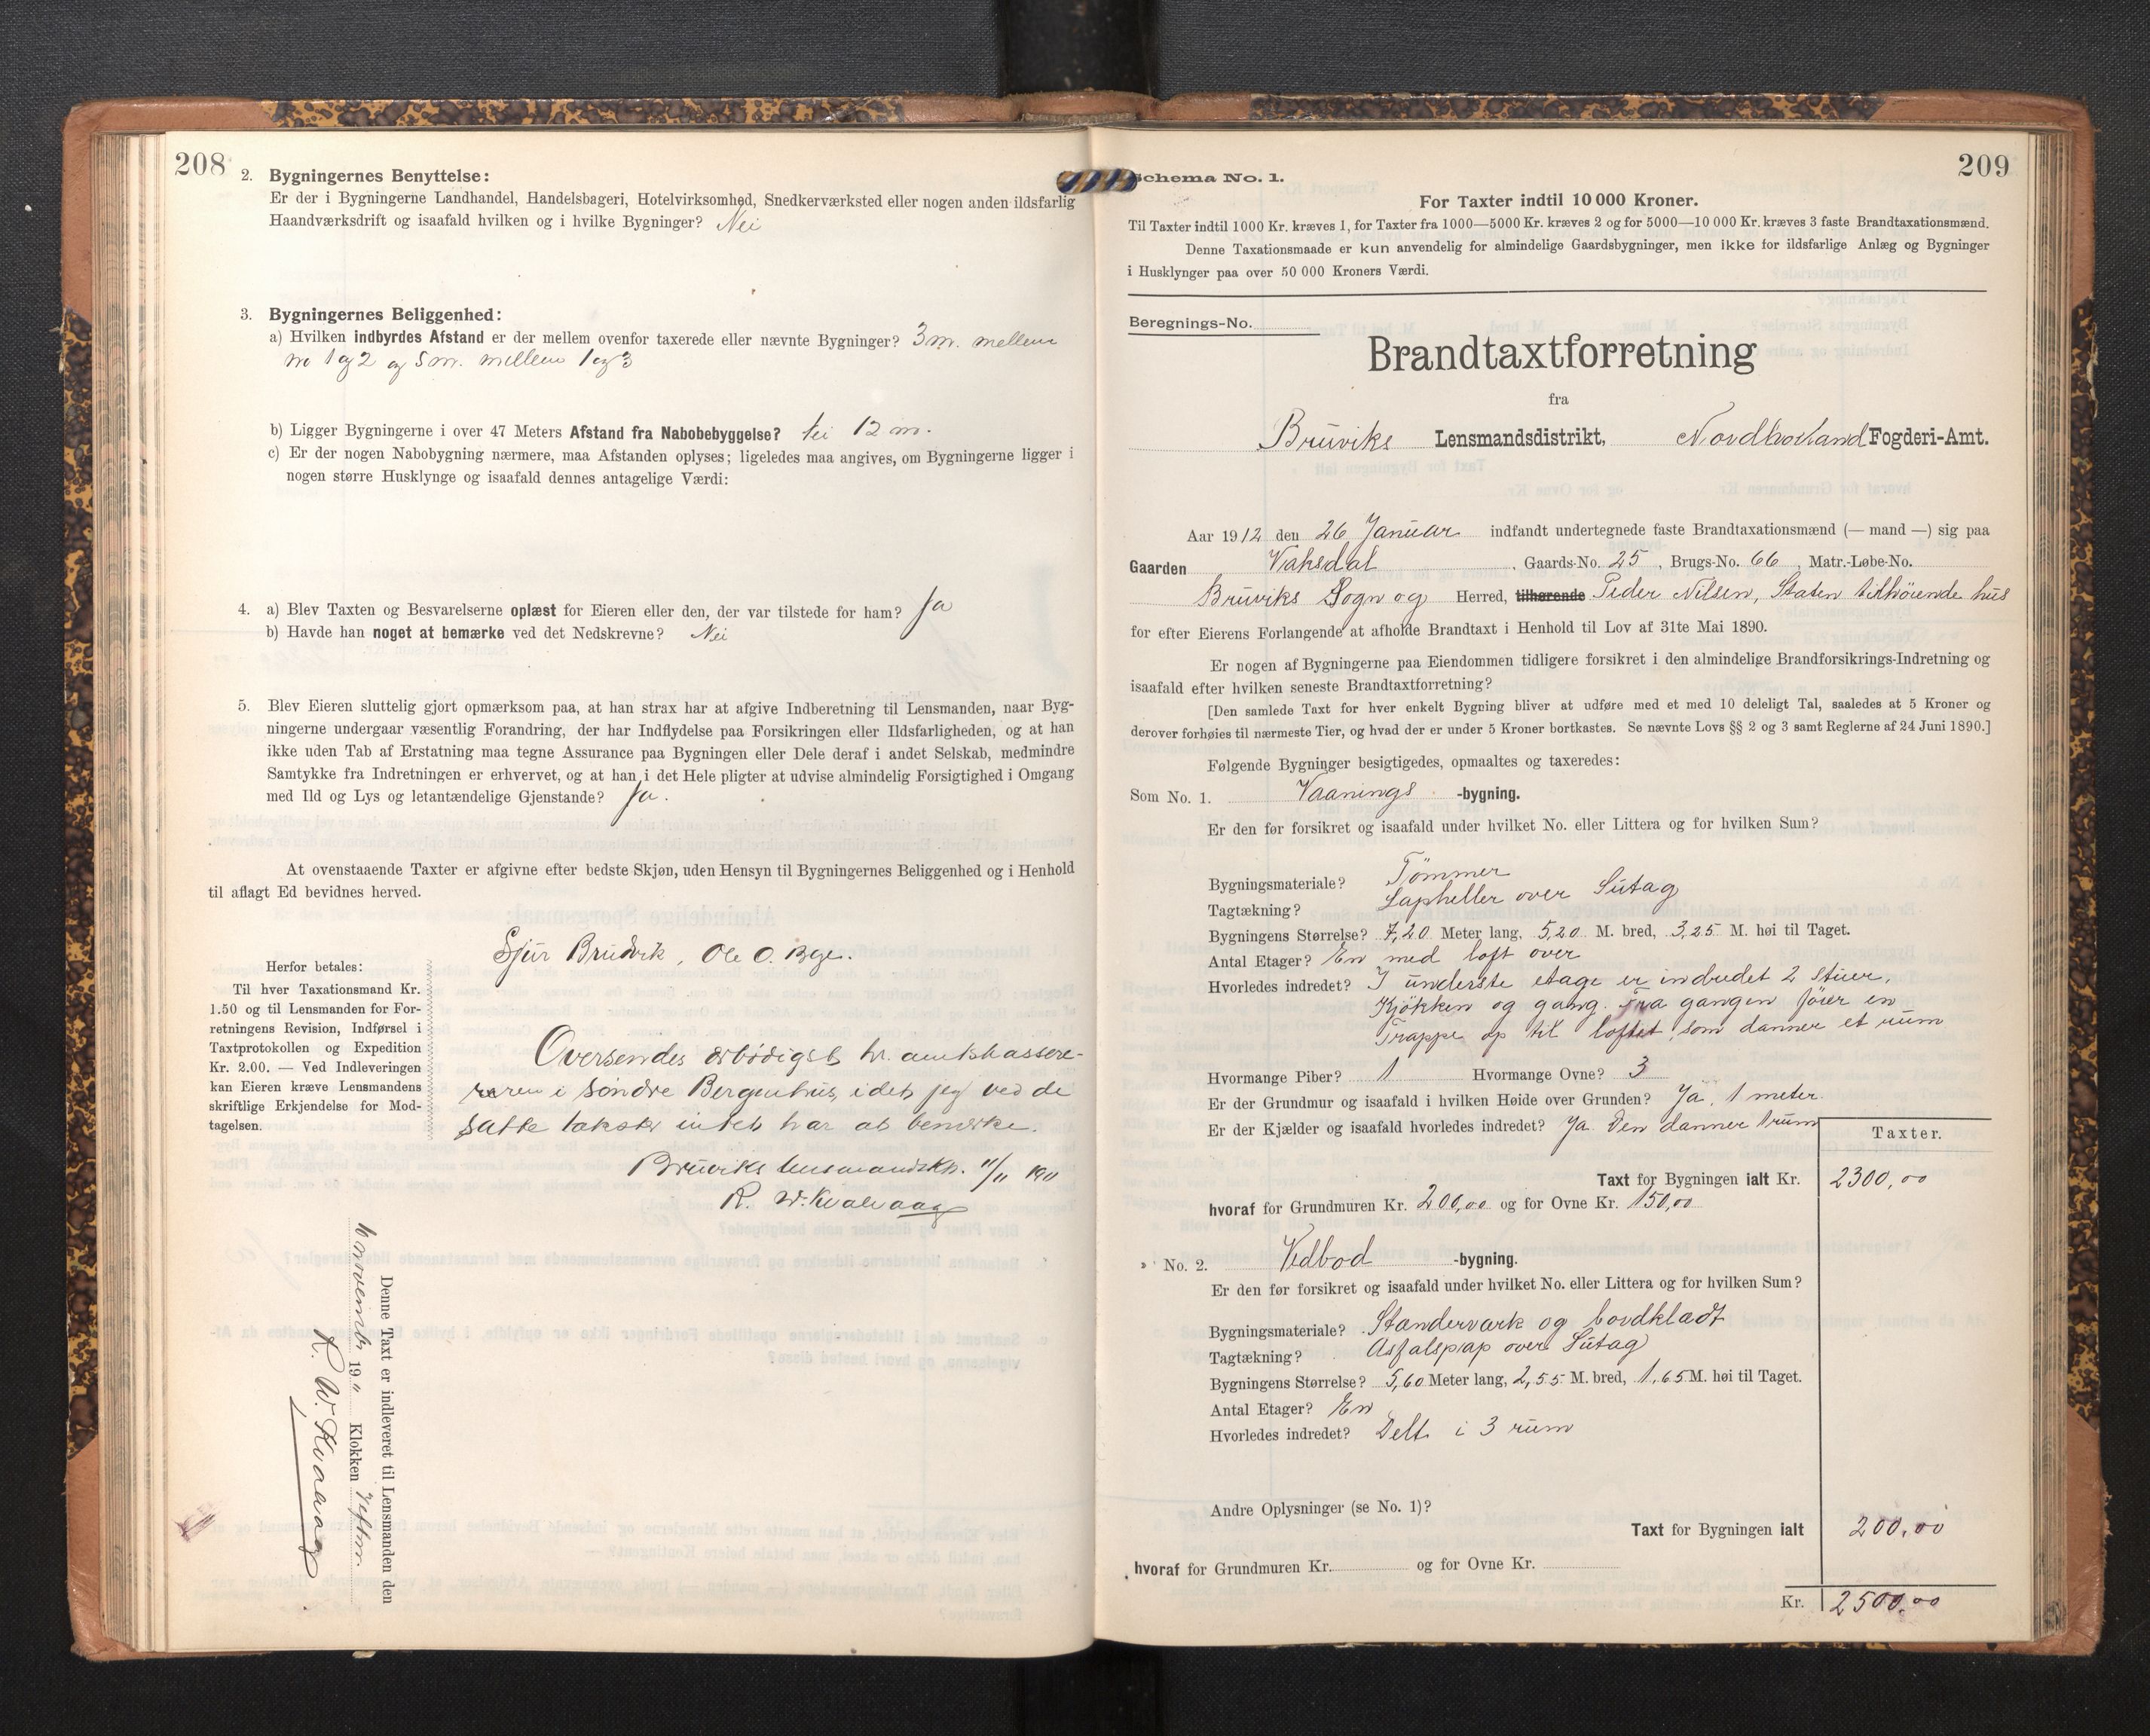 208
2. Bygningernes Benyttelse:
Er der i Bygningerne Landhandel, Handelsbageri, Hotelvirksomhed, Snedkerværksted eller nogen anden ildsfarlig
Haandværksdrift og isaafald hvilken og i hvilke Bygninger? Nei
3. Bygningernes Beliggenhed:
a) Hvilken indbyrdes Afstand er der mellem ovenfor taxerede eller nævnte Bygninger? 3 m. mellem
no 1 og 2 og 5 m. mellem 1 og 3
b) Ligger Bygningerne i over 47 Meters Afstand fra Nabobebyggelse? Nei 12 m.
c) Er der nogen Nabobygning nærmere, maa Afstanden oplyses; ligeledes maa angives, om Bygningerne ligger i
nogen større Husklynge og isaafald dennes antagelige Værdi:
4. a) Blev Taxten og Besvarelserne oplæst for Eieren eller den, der var tilstede for ham? Ja
b) Havde han noget at bemærke ved det Nedskrevne? Nei
5. Blev Eieren sluttelig gjort opmærksom paa, at han strax har at afgive Indberetning til Lensmanden, naar Byg-
ningerne undergaar væsentlig Forandring, der har Indflydelse paa Forsikringen eller Ildsfarligheden, og at han
ikke uden Tab af Erstatning maa tegne Assurance paa Bygningen eller Dele deraf i andet Selskab, medmindre
Samtykke fra Indretningen er erhvervet, og at han i det Hele pligter at udvise almindelig Forsigtighed i Omgang
med Ild og Lys og letantændelige Gjenstande? Ja.
At ovenstaaende Taxter er afgivne efter bedste Skjøn, uden Hensyn til Bygningernes Beliggenhed og i Henhold
til aflagt Ed bevidnes herved.
Sjur Brudvik, Ole O. Bge.
Herfor betales:
Til hver Taxationsmand Kr.
1.50 og til Lensmanden for For-
retningens Revision, Indførsel i
Taxtprotokollen og Expedition
Kr. 2.00. — Ved Indleveringen
kan Eieren kræve Lensmandens
skriftlige Erkjendelse for Mod-
tagelsen.
Oversendes ærbødigst hr. amtskassere-
reren i søndre Bergenhus, idet jeg ved de
satte takster intet har at bemerke.
Bruviks lensmandskp. 11/11 1911
R. W. Kvalvaag
Denne Taxt er indleveret til Lensmanden den
novemb 1911 Klokken 7 eftm.
R. W. Kvalvaag
209
Schema No. 1.
For Taxter indtil 10 000 Kroner.
Til Taxter indtil 1000 Kr. kræves 1, for Taxter fra 1000—5000 Kr. kræves 2 og for 5000—10 000 Kr. kræves 3 faste Brandtaxationsmænd.
Denne Taxationsmaade er kun anvendelig for almindelige Gaardsbygninger, men ikke for ildsfarlige Anlæg og Bygninger
i Husklynger paa over 50 000 Kroners Værdi.
Beregnings-No.
Brandtaxtforretning
fra
Bruviks Lensmandsdistrikt, Nordhorland Fogderi-Amt.
Aar 1912 den 26 Januar indfandt undertegnede faste Brandtaxationsmænd (— mand —) sig paa
Gaarden Vaksdal, Gaards-No. 25, Brugs-No. 66, Matr.-Løbe-No.
Bruviks Sogn og Herred, tilhørende Peder Nilsen, Staten tilhørende hus
for efter Eierens Forlangende at afholde Brandtaxt i Henhold til Lov af 31te Mai 1890.
Er nogen af Bygningerne paa Eiendommen tidligere forsikret i den almindelige Brandforsikrings-Indretning og
isaafald efter hvilken seneste Brandtaxtforretning?
[Den samlede Taxt for hver enkelt Bygning bliver at udføre med et med 10 deleligt Tal, saaledes at 5 Kroner og
derover forhøies til nærmeste Tier, og hvad der er under 5 Kroner bortkastes. Se nævnte Lovs §§ 2 og 3 samt Reglerne af 24 Juni 1890.]
Følgende Bygninger besigtigedes, opmaaltes og taxeredes:
Som No. 1. Vaanings -bygning.
Er den før forsikret og isaafald under hvilket No. eller Littera og for hvilken Sum?
Bygningsmateriale? Tømmer
Tagtækning? Lapheller over Sutag
Bygningens Størrelse? 7,20 Meter lang, 5,20 M. bred, 3,25 M. høi til Taget.
Antal Etager? En med loft over
Hvorledes indredet? I underste etage er indredet 2 stuer,
Kjøkken og gang. Fra gangen fører en
Trappe op til loftet, som danner et rum
Hvormange Piber? 1 Hvormange Ovne? 3
Er der Grundmur og isaafald i hvilken Høide over Grunden? Ja, 1 meter.
Er der Kjælder og isaafald hvorledes indredet? Ja Den danner 1 rum
Taxter.
Taxt for Bygningen ialt Kr. 2300,00
hvoraf for Grundmuren Kr. 200,00 og for Ovne Kr. 150,00
No. 2. Vedbod -bygning.
Er den før forsikret og isaafald under hvilket No. eller Littera og for hvilken Sum?
Bygningsmateriale? Standerværk og bordklædt
Tagtækning? Asfalspap over Sutag
Bygningens Størrelse? 5,60 Meter lang, 2,55 M. bred, 1,65 M. høi til Taget.
Antal Etager? En
Hvorledes indredet? Delt i 3 rum
Andre Oplysninger (se No. 1)?
Taxt for Bygningen ialt 200,00
hvoraf for Grundmuren Kr. og for Ovne Kr.
Kr. 2500,00